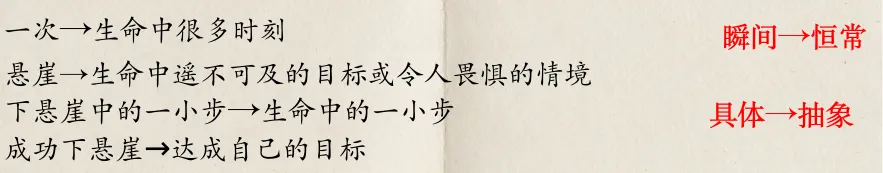 一次→生命中很多时刻
瞬间→恒常
悬崖→生命中遥不可及的目标或令人畏惧的情境
下悬崖中的一小步→生命中的一小步
具体→抽象
成功下悬崖→达成自己的目标